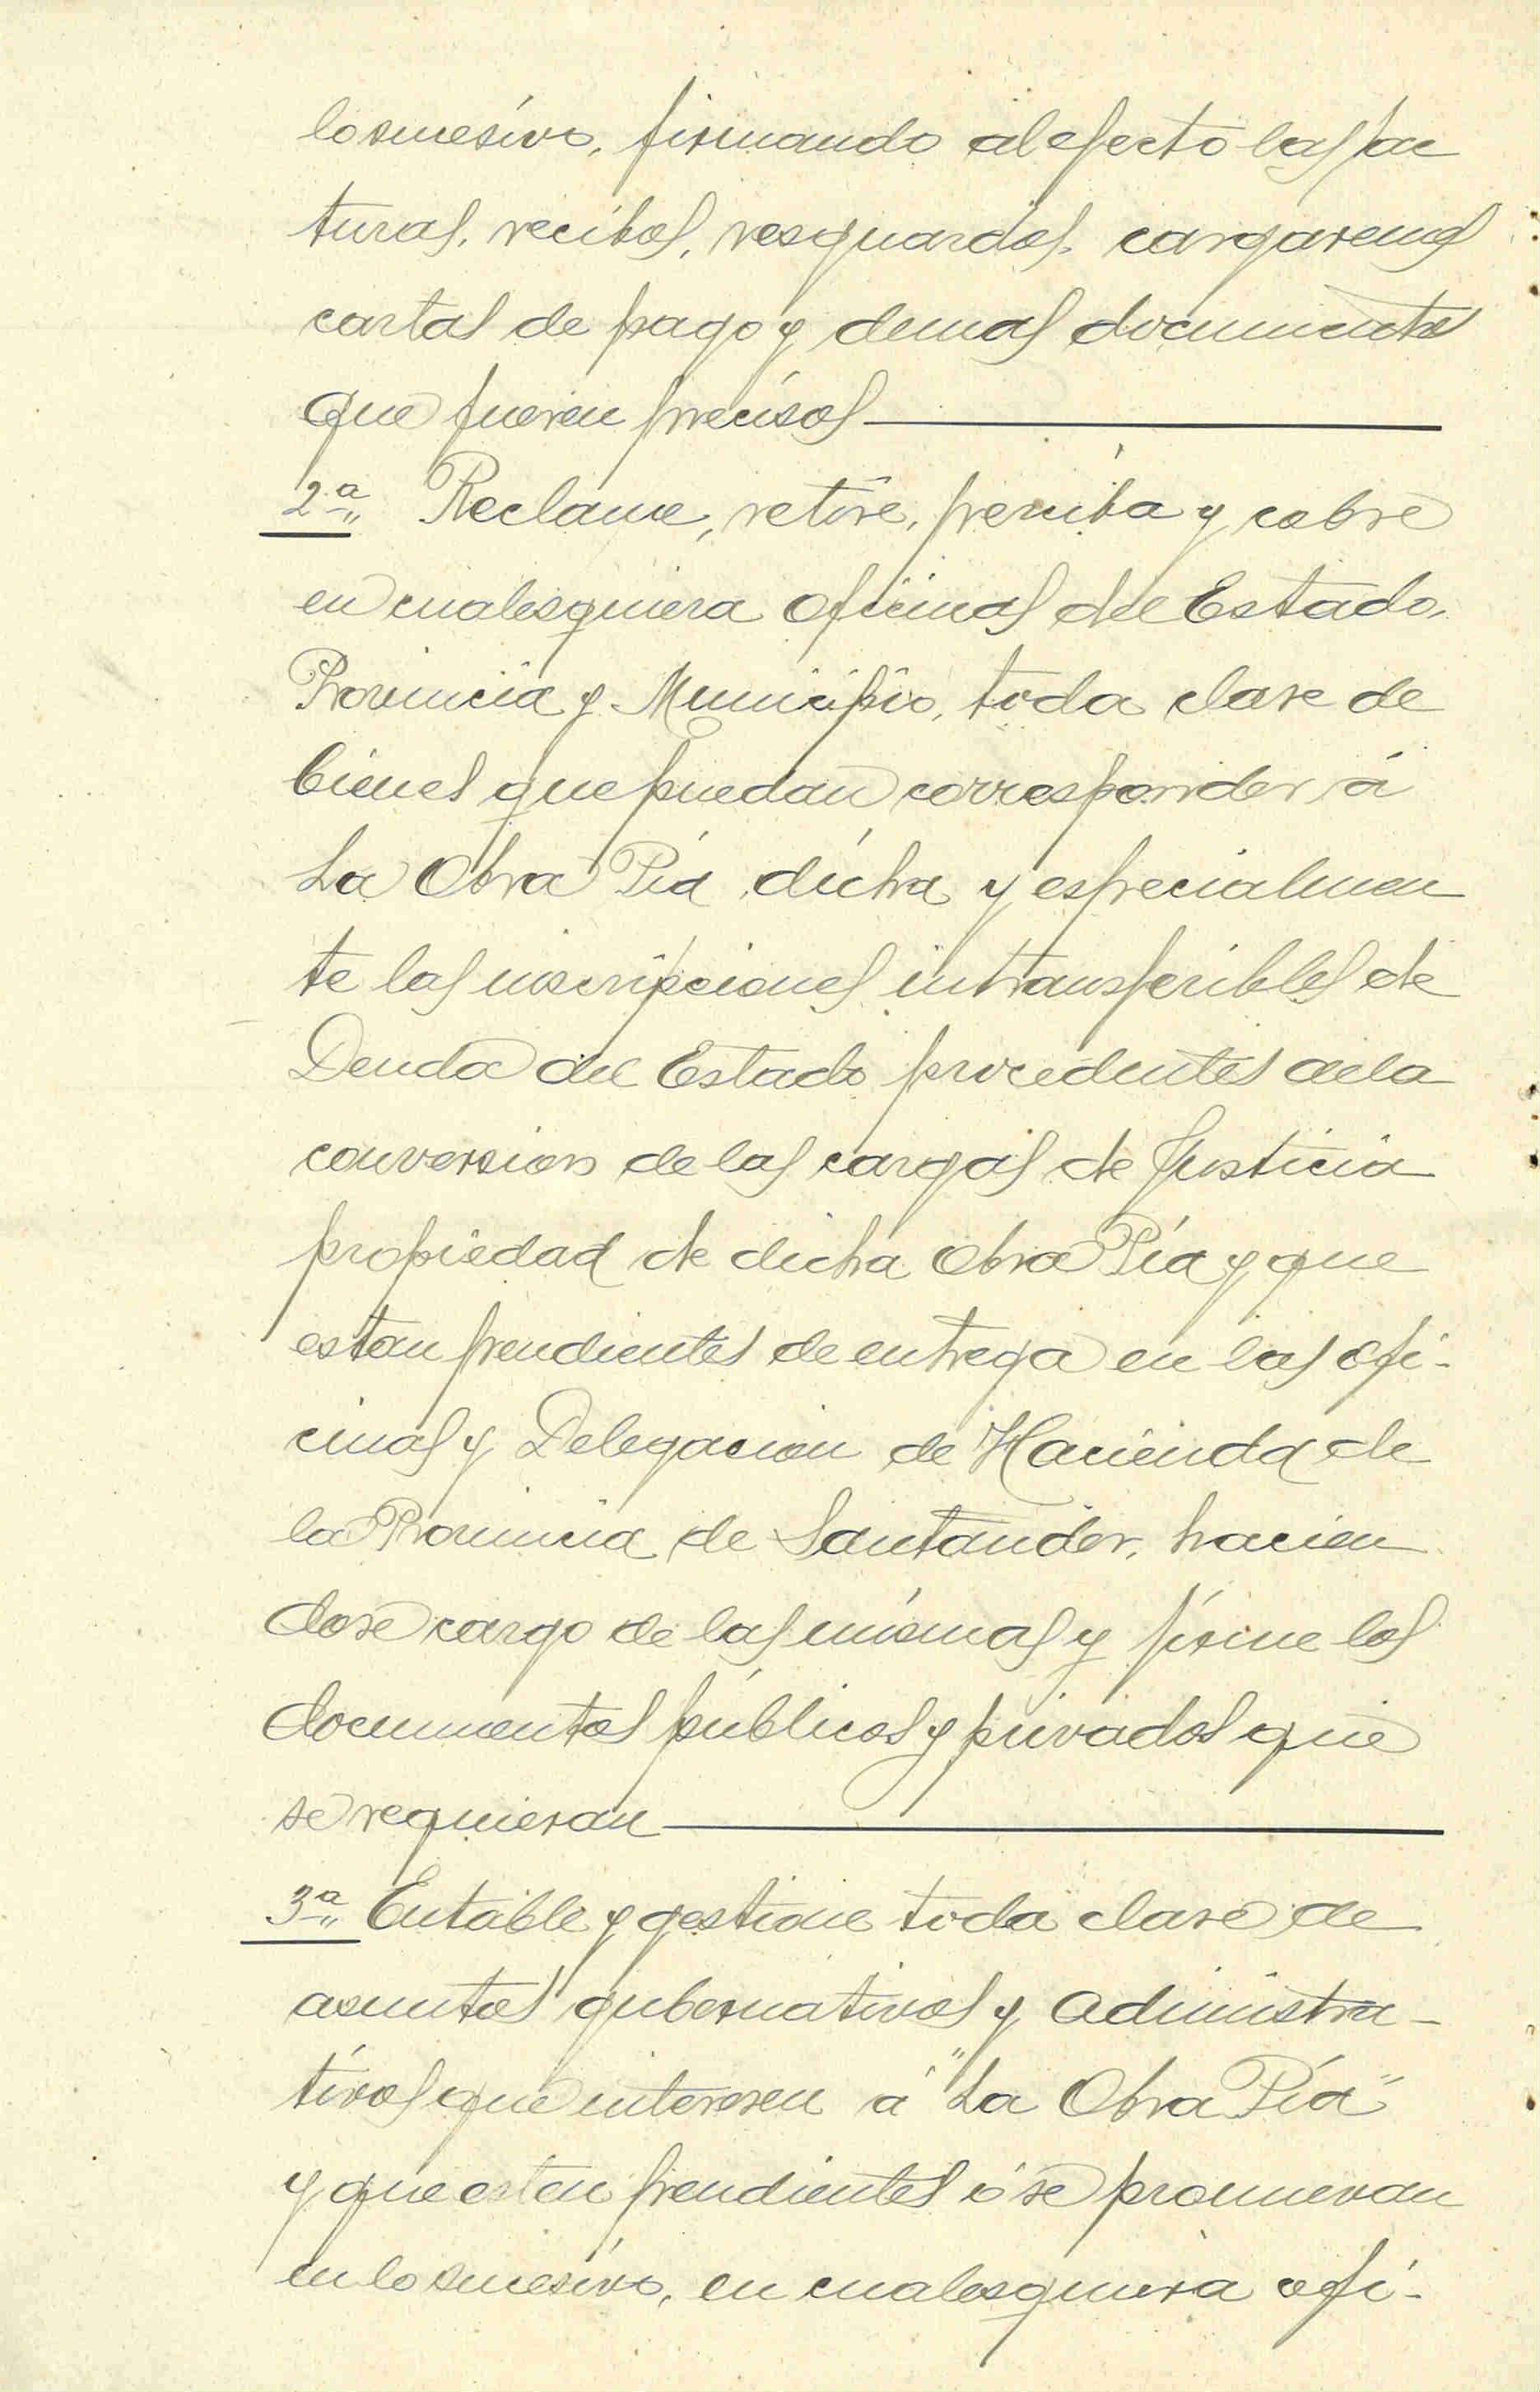 lo sucesivo, firmando al efecto las fac
turas, recibos, resguardos, cargaremes
cartas de pago y demas documentos
que fueren precisos
2.ª Reclame, retire, perciba y cobre
en cualesquiera oficinas del Estado,
Provincia y Municipio, toda clase de
bienes que puedan corresponder á
La Obra Pía dicha y especialmen
te las inscripciones intransferibles de
Deuda del Estado procedentes de la
conversion de las cargas de Justicia
propiedad de dicha Obra Pía y que
estan pendientes de entrega en las ofi-
cinas y Delegacion de Hacienda de
la Provincia de Santander, hacien
dose cargo de las mismas y firme los
documentos públicos y privados que
se requieran
3.ª Entable y gestione toda clase de
asuntos gubernativos y administra-
tivos que interesen á "La Obra Pía"
y que esten pendientes ó se promuevan
en lo sucesivo, en cualesquiera ofi-